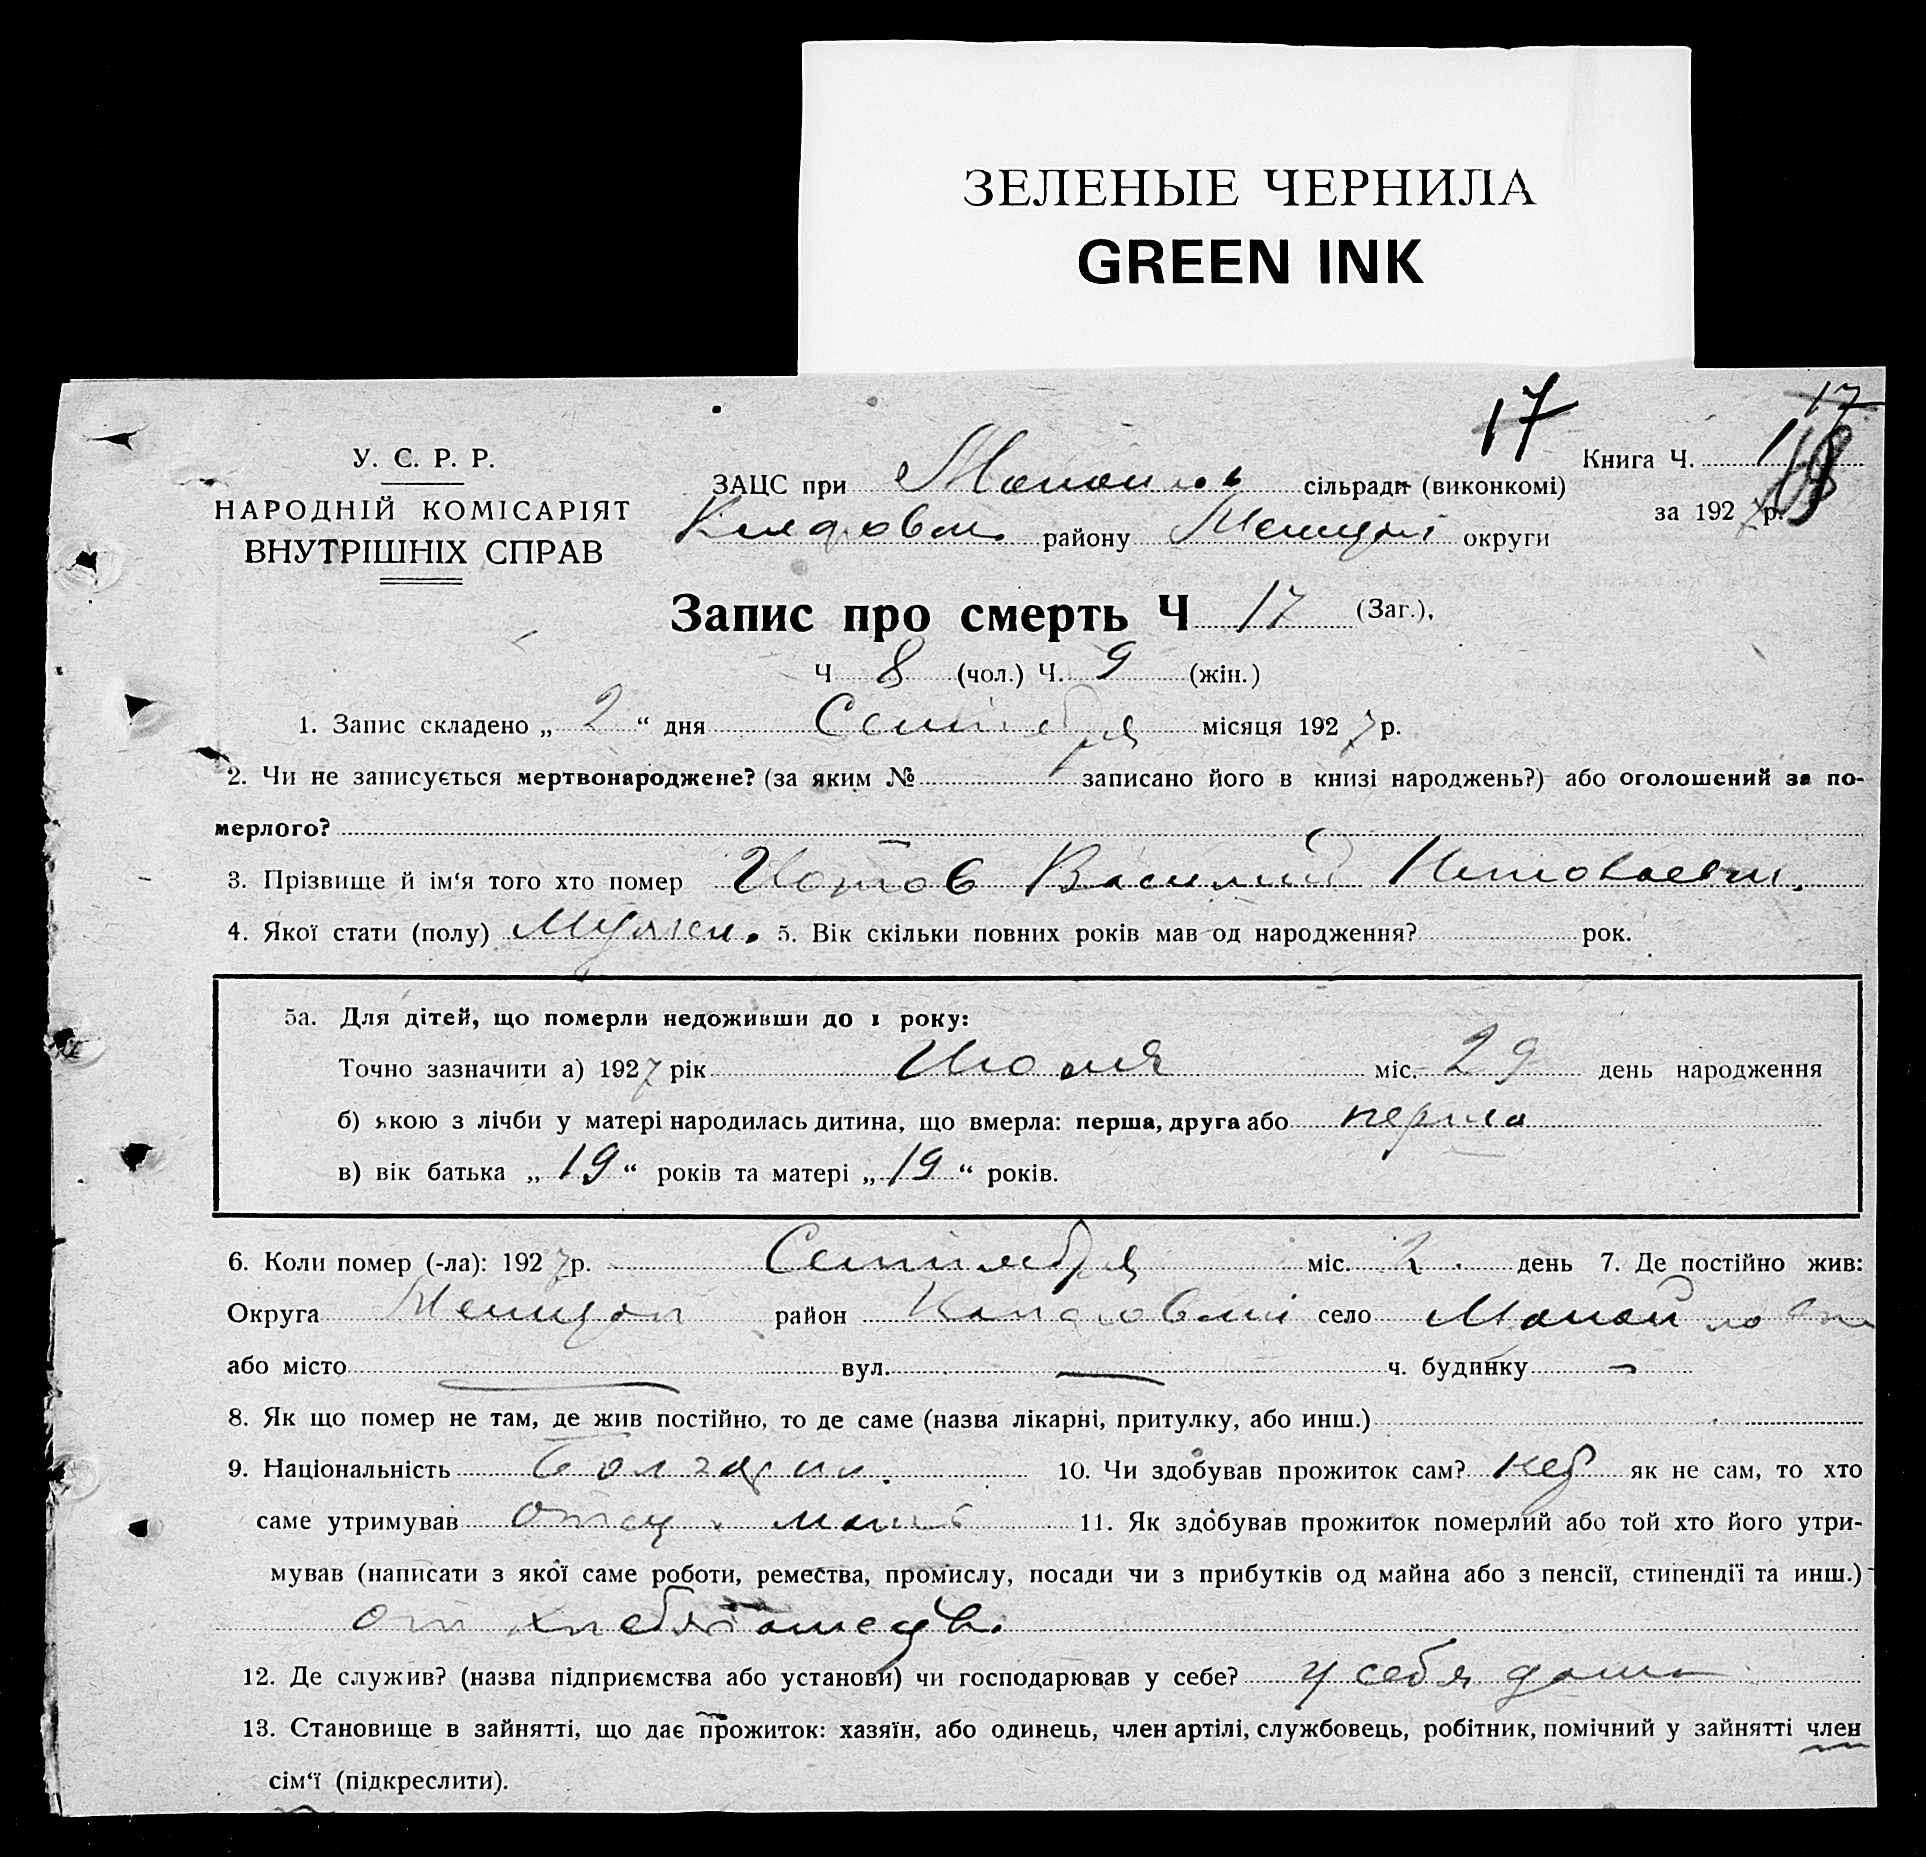 ЗЕЛЕНЫЕ ЧЕРНИЛА
GREEN INK
17
17
У. С. Р. Р.
НАРОДНІЙ КОМІСАРІЯТ
ВНУТРІШНІХ СПРАВ
Книга Ч. 1
ЗАЦС при сільради (виконкомі)
за 1927 р.
району округи
Запис про смерть Ч 17 (Заг.),
Ч 8 (чол.) Ч. 9 (жін.)
1. Запис складено „ 2 “ дня Сентября місяця 1927 р.
2. Чи не записується мертвонароджене? (за яким № записано його в книзі народжень?) або оголошений за по-
мерлого?
3. Прізвище й ім‘я того хто помер Йотов Василий Николаевич.
4. Якої стати (полу) Мужск. 5. Вік скільки повних років мав од народження? рок.
5а. Для дітей, що померли недоживши до 1 року:
Точно зазначити а) 1927 рік Июля міс. 29 день народження
б) якою з лічби у матері народилась дитина, що вмерла: перша, друга або перша
в) вік батька „ 19 “ років та матері „ 19 “ років.
6. Коли помер (-ла): 1927 р. Сентября міс. 2 день 7. Де постійно жив:
Округа район село
або місто — вул. — ч. будинку —
8. Як що помер не там, де жив постійно, то де саме (назва лікарні, притулку, або инш.)
9. Національність Болгарин. 10. Чи здобував прожиток сам? нет як не сам, то хто
саме утримував отец и мать 11. Як здобував прожиток померлий або той хто його утри-
мував (написати з якої саме роботи, ремества, промислу, посади чи з прибутків од майна або з пенсії, стипендії та инш.)
от
12. Де служив? (назва підприємства або установи) чи господарював у себе? у себя дома
13. Становище в зайнятті, що дає прожиток: хазяїн, або одинець, член артілі, службовець, робітник, помічний у зайнятті член
сім‘ї (підкреслити).